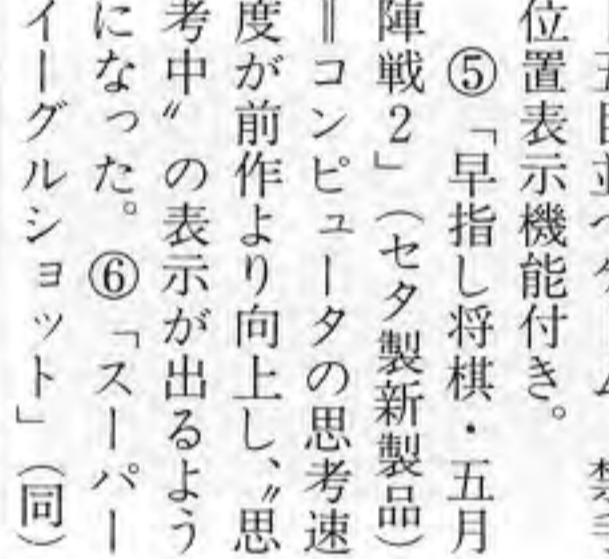 五目並べゲーム 禁手
位置表示機能付き。
⑤「早指し将棋・五月
陣戦2」(セタ製新製品)
＝コンピュータの思考速
度が前作より向上し、〝思
考中〟の表示が出るよう
になった。⑥「スーパー
イーグルショット」(同)